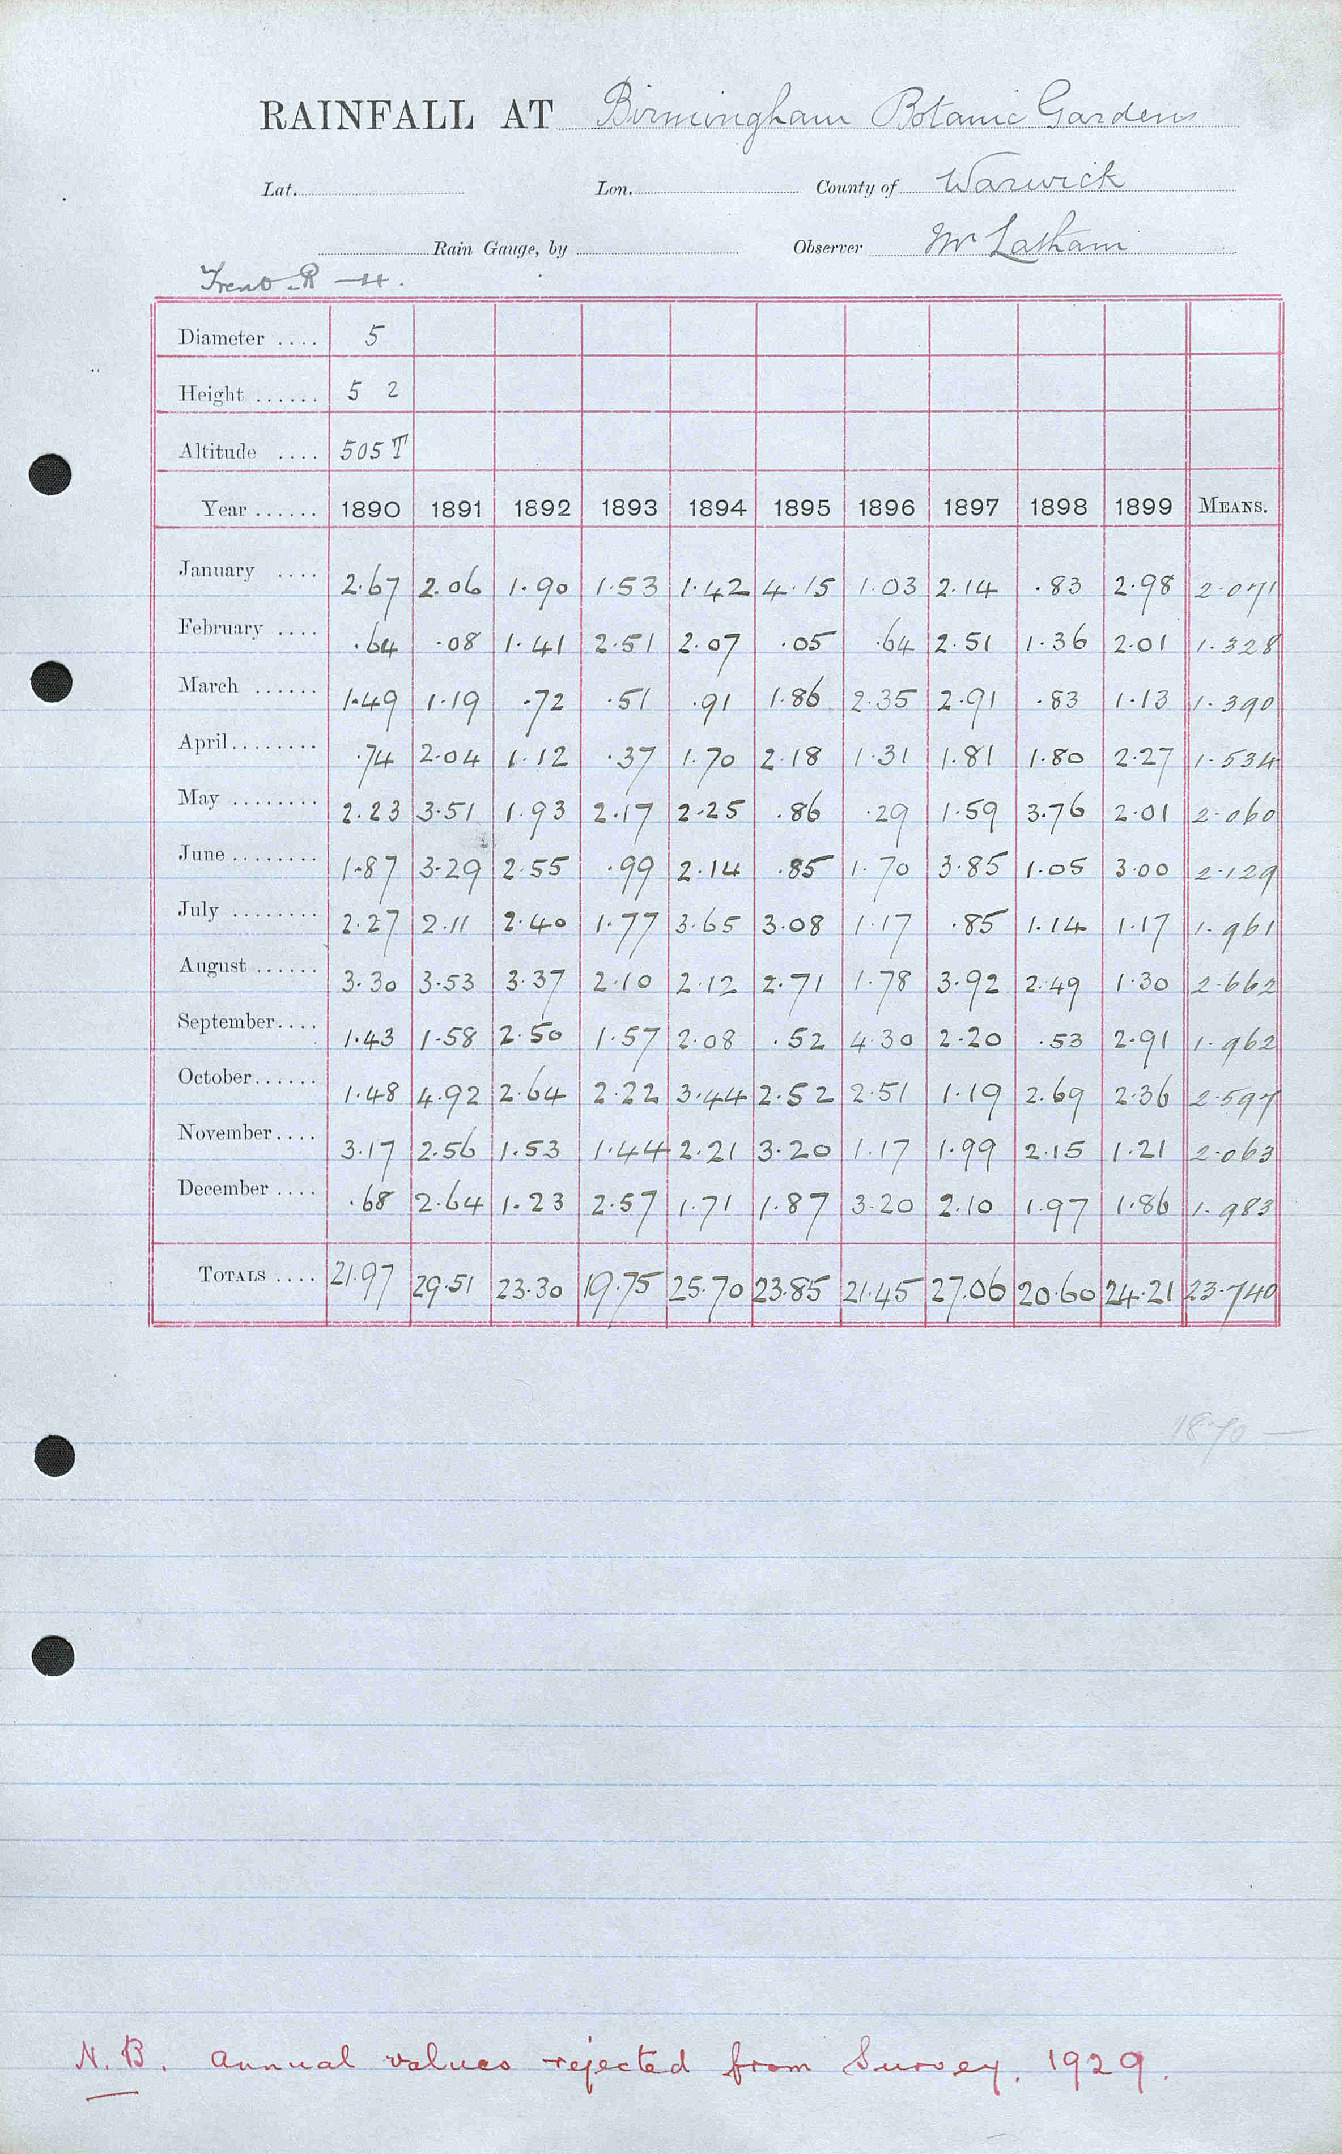 RAINFALL AT Birmingham Botanic Gardens
Lat. Lon. County of Warwick
Rain Gauge, by Observer Mr Latham
Trent R
Diameter .... 5
Height ...... 5 2
Altitude .... 505 T
Year ...... 1890 1891 1892 1893 1894 1895 1896 1897 1898 1899 MEANS.
January .... 2.67 2.06 1.90 1.53 1.42 4.15 1.03 2.14 .83 2.98 2.071
February .... .64 .08 1.41 2.51 2.07 .05 .64 2.51 1.36 2.01 1.328
March ...... 1.49 1.19 .72 .51 .91 1.86 2.35 2.91 .83 1.13 1.390
April ........ .74 2.04 1.12 .37 1.70 2.18 1.31 1.81 1.80 2.27 1.534
May ........ 2.23 3.51 1.93 2.17 2.25 .86 .29 1.59 3.76 2.01 2.060
June ........ 1.87 3.29 2.55 .99 2.14 .85 1.70 3.85 1.05 3.00 2.129
July ........ 2.27 2.11 2.40 1.77 3.65 3.08 1.17 .85 1.14 1.17 1.961
August ...... 3.30 3.53 3.37 2.10 2.12 2.71 1.78 3.92 2.49 1.30 2.662
September.... 1.43 1.58 2.50 1.57 2.08 .52 4.30 2.20 .53 2.91 1.962
October...... 1.48 4.92 2.64 2.22 3.44 2.52 2.51 1.19 2.69 2.36 2.597
November.... 3.17 2.56 1.53 1.44 2.21 3.20 1.17 1.99 2.15 1.21 2.063
December .... .68 2.64 1.23 2.57 1.71 1.87 3.20 2.10 1.97 1.86 1.983
TOTALS .... 21.97 29.51 23.30 19.75 25.70 23.85 21.45 27.06 20.60 24.21 23.740
1870 —
N.B. Annual values rejected from Survey. 1929.